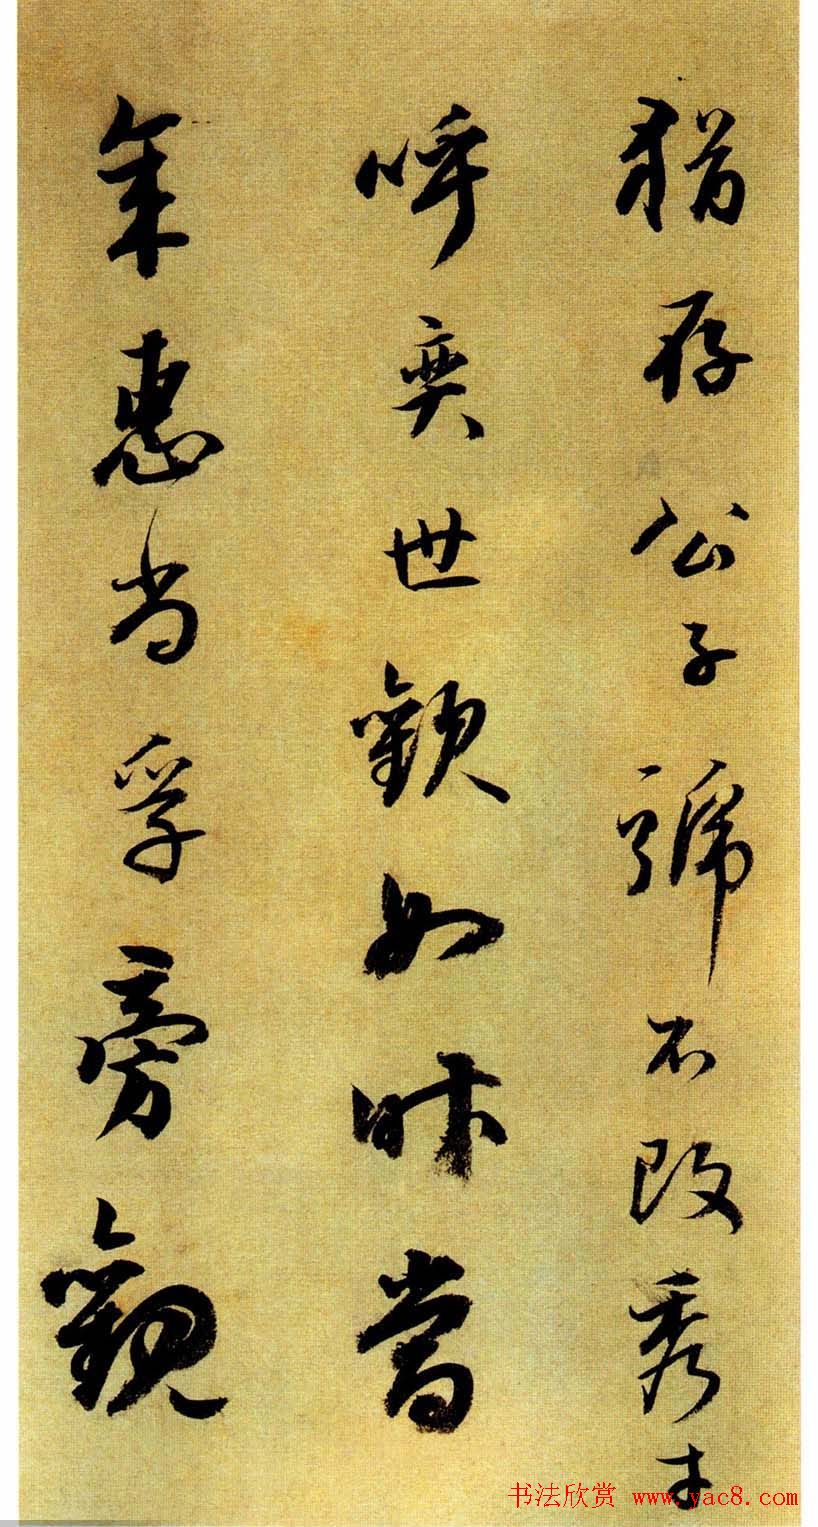 猶存公子號不改秀才
呼奕世歡如昨當
年惠尚孚旁觀
书法欣赏 www.yac8.com